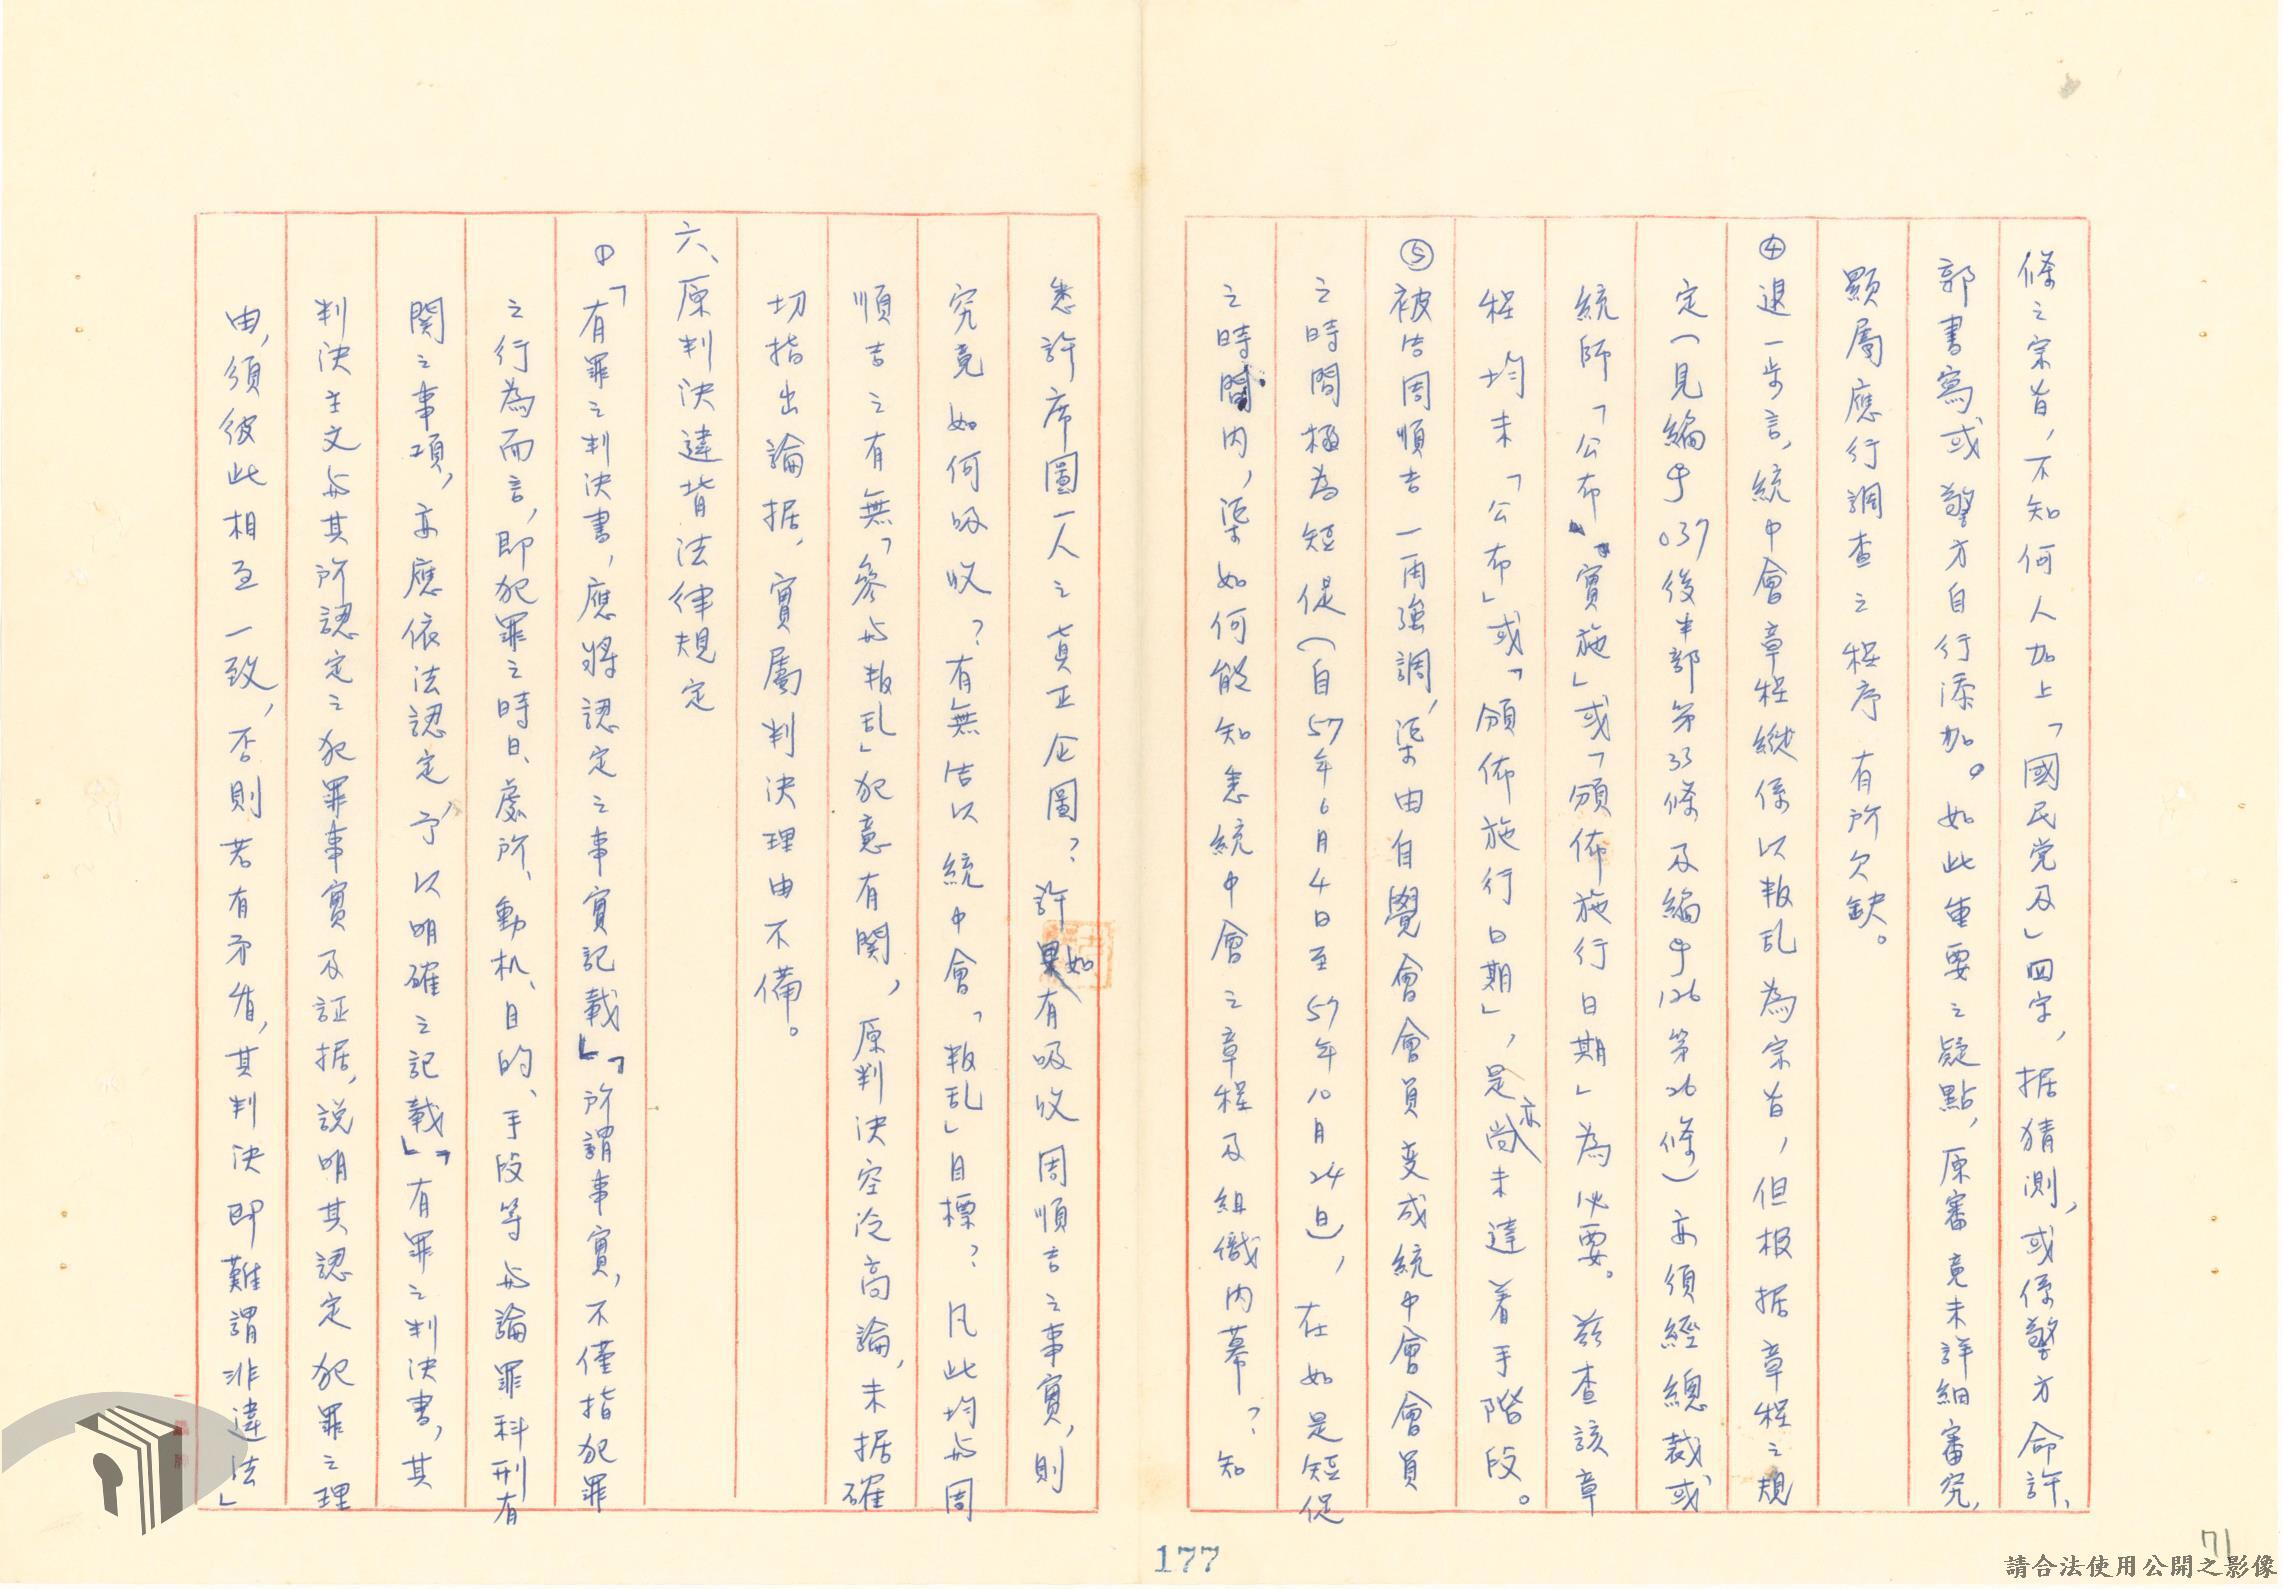 條之宗旨，不知何人加上「國民党及」四字，据猜測，或係警方命許、
郭書寫或警方自行添加。如此重要之疑點，原審竟未詳細審究，
顯屬應行調查之程序有所欠缺。
④退一步言，統中會章程縱係以叛乱為宗旨，但根据章程之規
定（見編号037後半部第33條及編号126第26條）亦須經總裁或
統帥「公布」「實施」或「頒佈施行日期」為必要。茲查該章
程均未「公布」或「頒佈施行日期」，是亦尚未達着手階段。
⑤被告周順吉一再強調，渠由自覺會會員变成統中會會員
之時間極為短促（自57年6月4日至57年10月24日），在如是短促
之時間內，渠如何能知悉統中會之章程及組織內幕？知
悉許席圖一人之真正企圖？許如有吸收周順吉之事實，則
究竟如何吸收？有無告以統中會「叛乱」目標？凡此均与周
順吉之有無「參与叛乱」犯意有関，原判決空泛高論，未据確
切指出論据，實屬判決理由不備。
六、原判決違背法律規定
①「有罪之判決書，應將認定之事實記載」「所謂事實，不僅指犯罪
之行為而言，即犯罪之時日、處所、動机、目的、手段等与論罪科刑有
関之事項，亦應依法認定，予以明確之記載」「有罪之判決書，其
判決主文与其所認定之犯罪事實及証据，說明其認定犯罪之理
由，須彼此相互一致，否則若有矛盾，其判決即難謂非違法」
177
71
請合法使用公開之影像